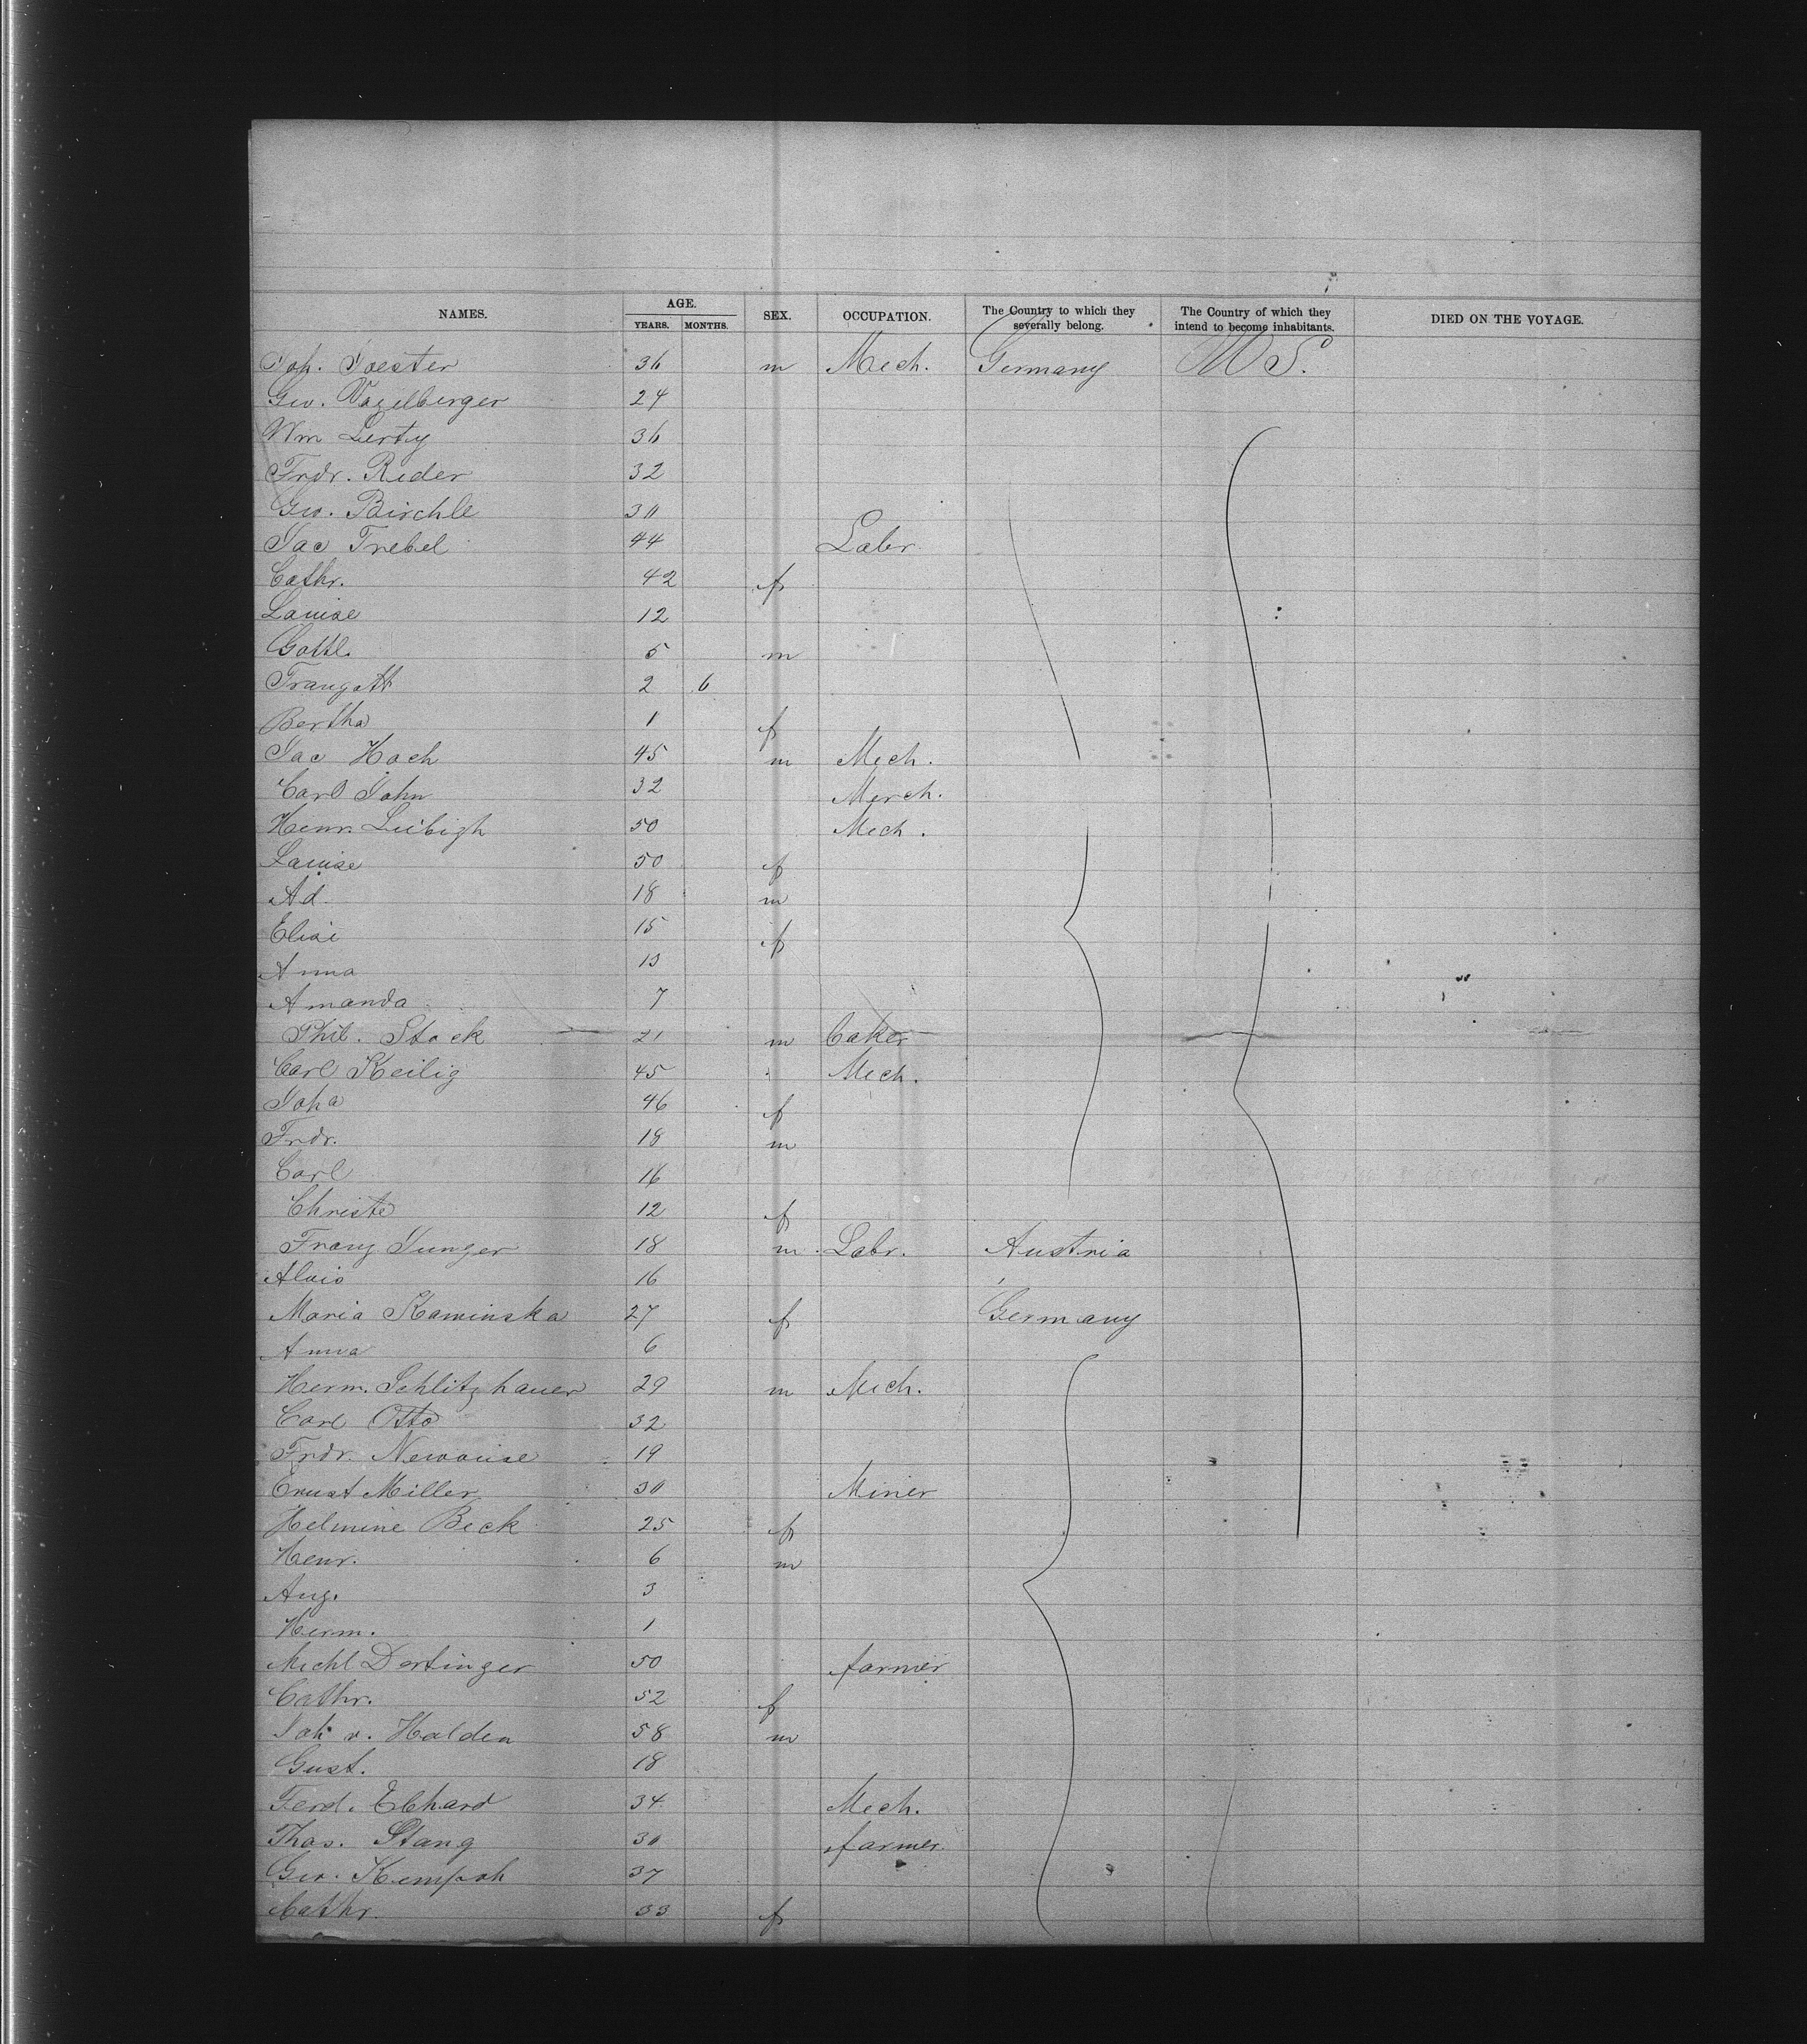 NAMES. AGE. YEARS. MONTHS. SEX. OCCUPATION. The Country to which they severally belong. The Country of which they intend to become inhabitants. DIED ON THE VOYAGE.
Joh. Joester 36 m Mech. Germany U S.
Geo. Vogelberger 24
Wm Lerty 36
Frdr. Rieder 32
Geo. Birchle 30
Jac Trebel 44 Labr.
Cathr. 42 f
Louise 12
Gottl. 5 m
Traugott 2 6
Bertha 1 f
Jac Hoch 45 m Mech.
Carl John 32 Merch.
Henr. Leibigh 50 Mech.
Louise 50 f
Ad. 18 m
Elise 15 f
Anna 13
Amanda 7
Phil. Stock 21 m baker
Carl Keilig 45 Mech.
Joha 46 f
Frdr. 18 m
Carl 16
Christe 12 f
Franz Junger 18 m Labr. Austria
Alois 16
Maria Kaminska 27 f Germany
Anna 6
Herm. Schlitzhauer 29 m Mech.
Carl Otto 32
Frdr. 19
Ernst Miller 30 Miner
Helmine Beck 25 f
Henr. 6 m
Aug. 3
Herm. 1
Michl Dertinger 50 farmer
Cathr. 52 f
Joh v. Halden 58 m
Gust. 18
Ferd. Ebhard 34 Mech.
Thos. Stang 30 farmer
Geo. 37
Cathr. 33 f